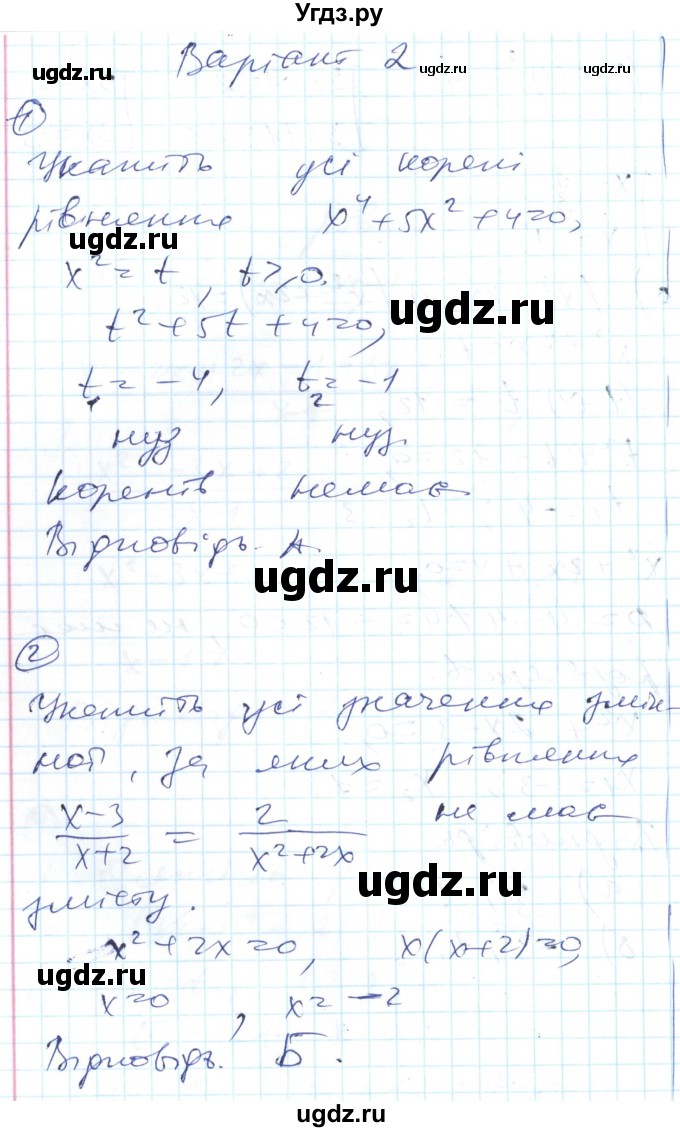 Угдз.ру
ugdz.ru Варіант 2 ugdz.ru ugdz.ru
①
Укажіть усі корені
рівняння x⁴+5x²+4=0,
ugdz.ru
x²=t, t≥0.
ugdz.ru
t²+5t+4=0,
t₁=-4, t₂=-1
нуз нуз.
Коренів немає
Відповідь. А.
ugdz.ru
②
Укажіть усі значення змін-
ної, за яких рівняння
(x-3)/(x+2) = 2/(x²+2x) не має
ugdz.ru
змісту.
x²+2x=0, x(x+2)=0,
ugdz.ru
x=0, x=-2
Відповідь. Б.
ugdz.ru